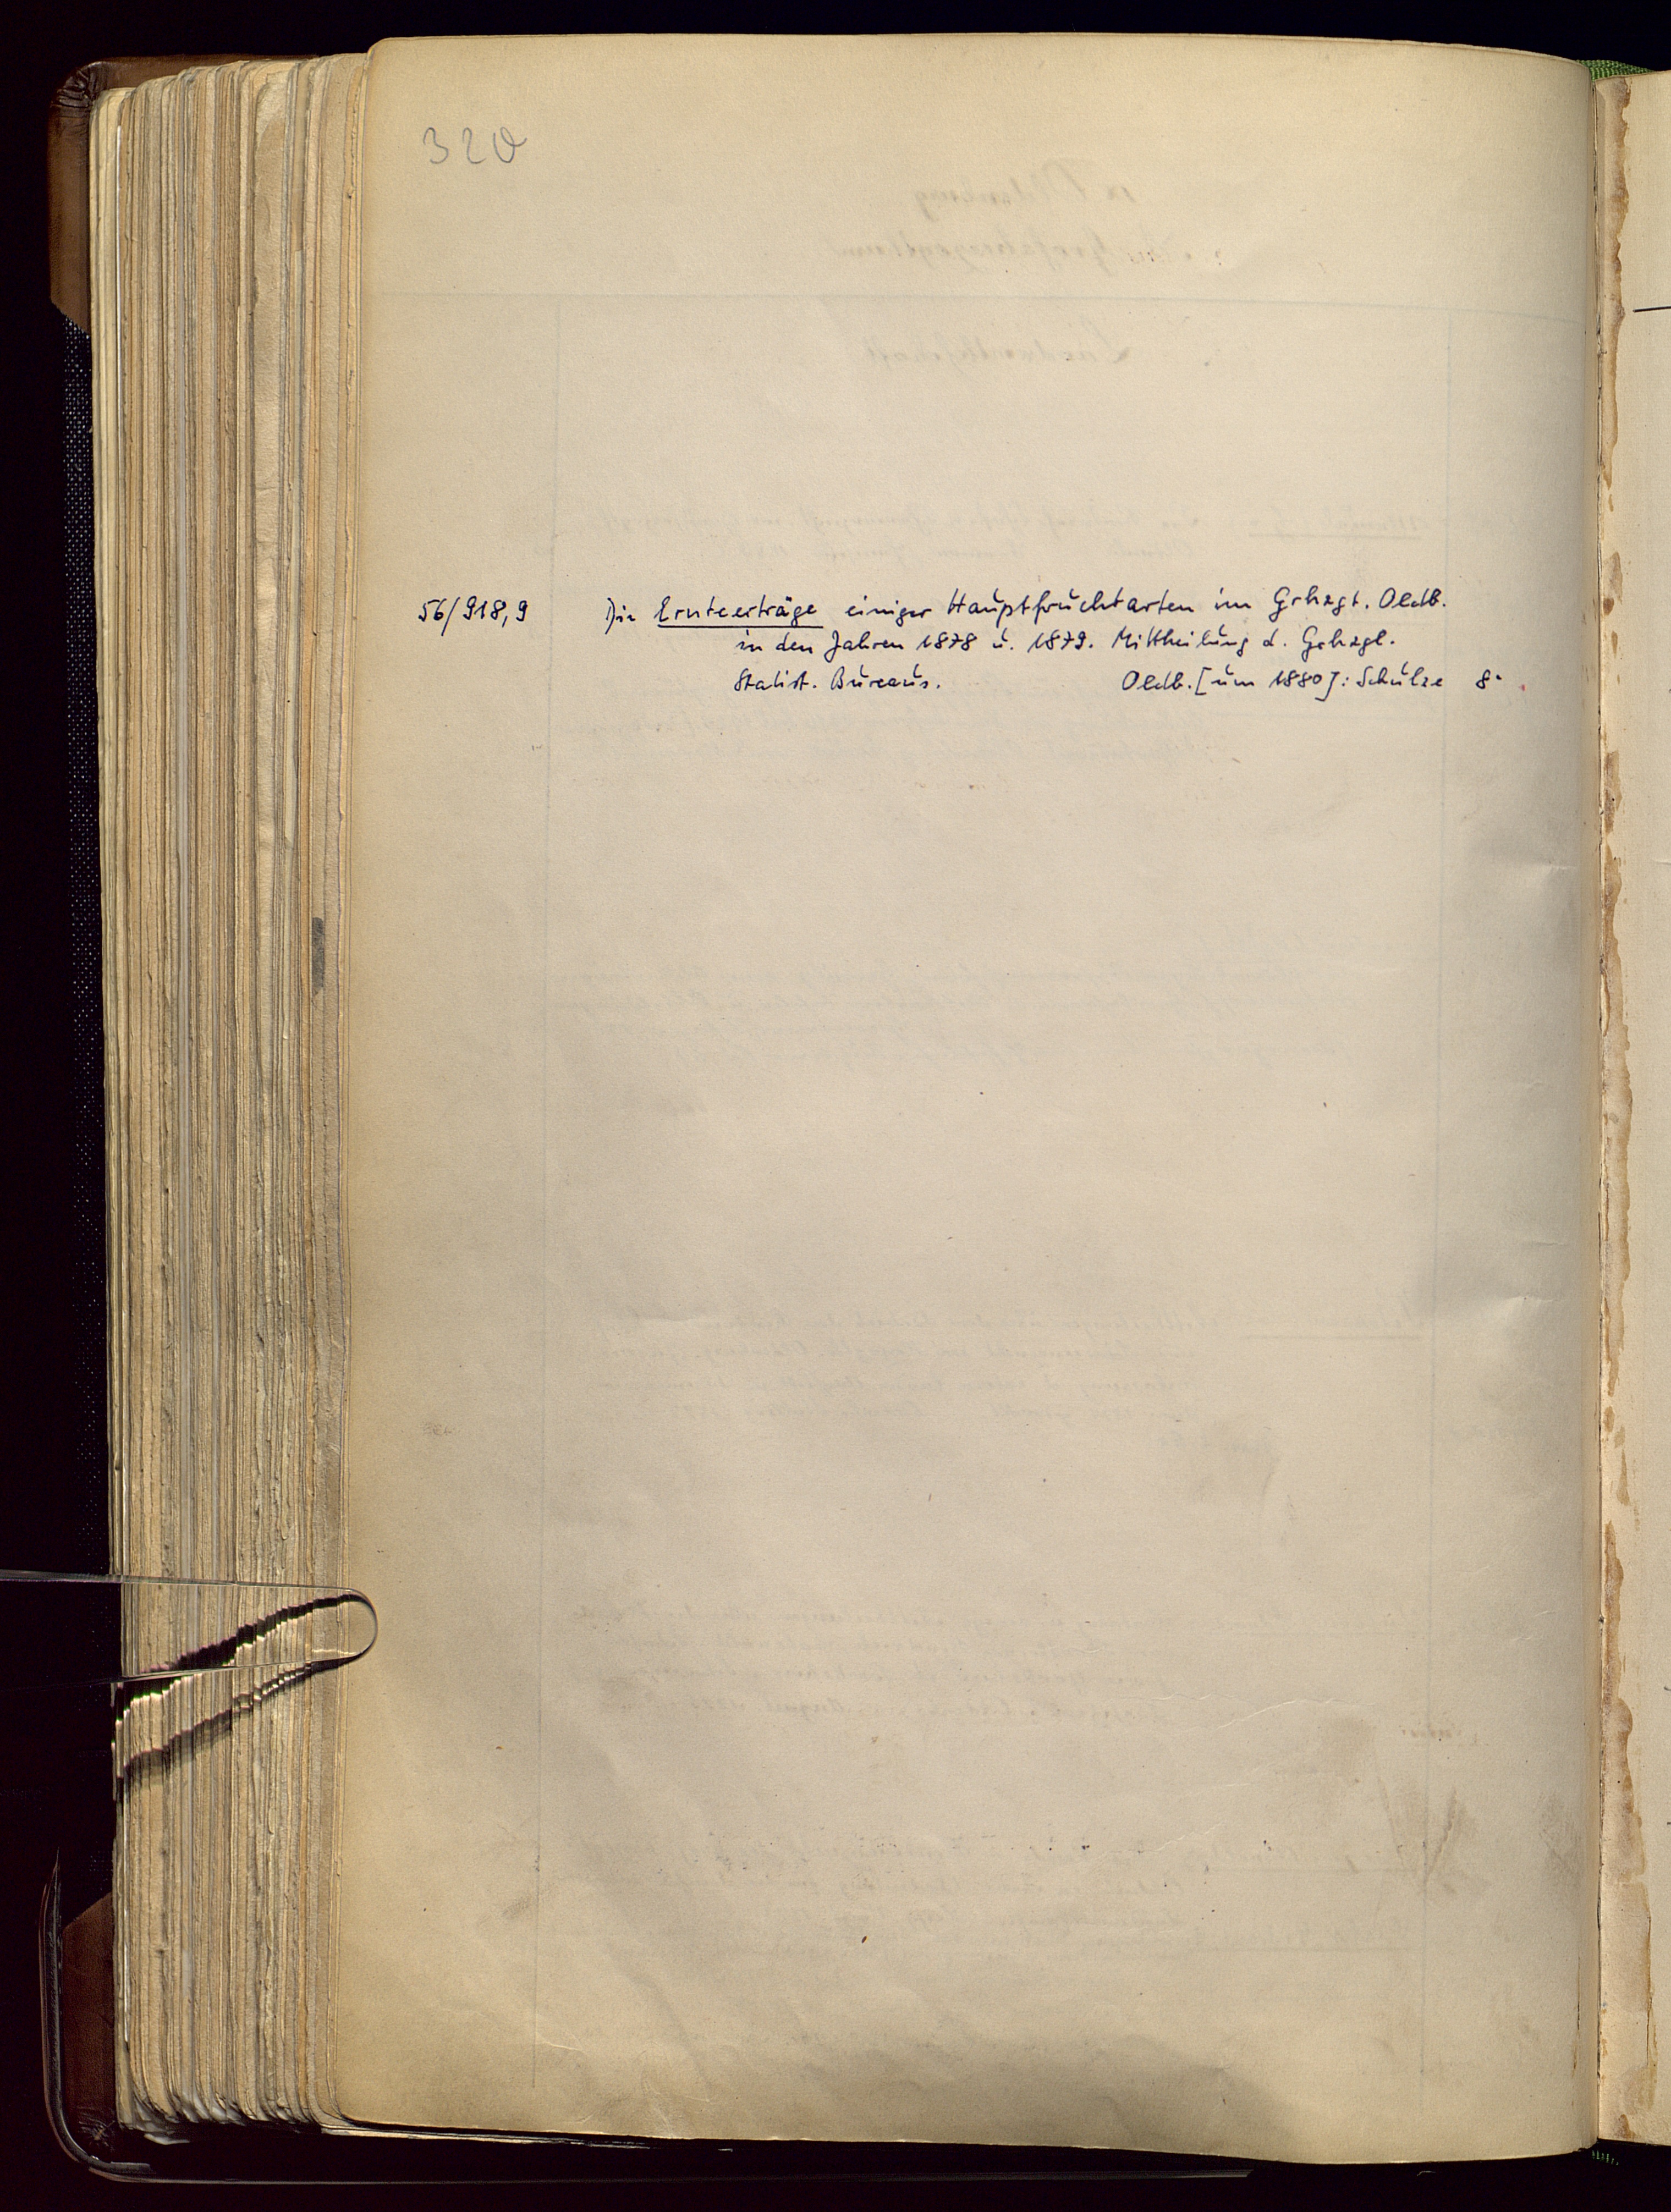 320
56/918,9 Die Ernteerträge einiger Hauptfruchtarten im Grhzgt. Oldb.
in den Jahren 1878 u. 1879. Mittheilung d. Grhzgl.
Statist. Bureaus. Oldb. [um 1880]: Schulze 8°